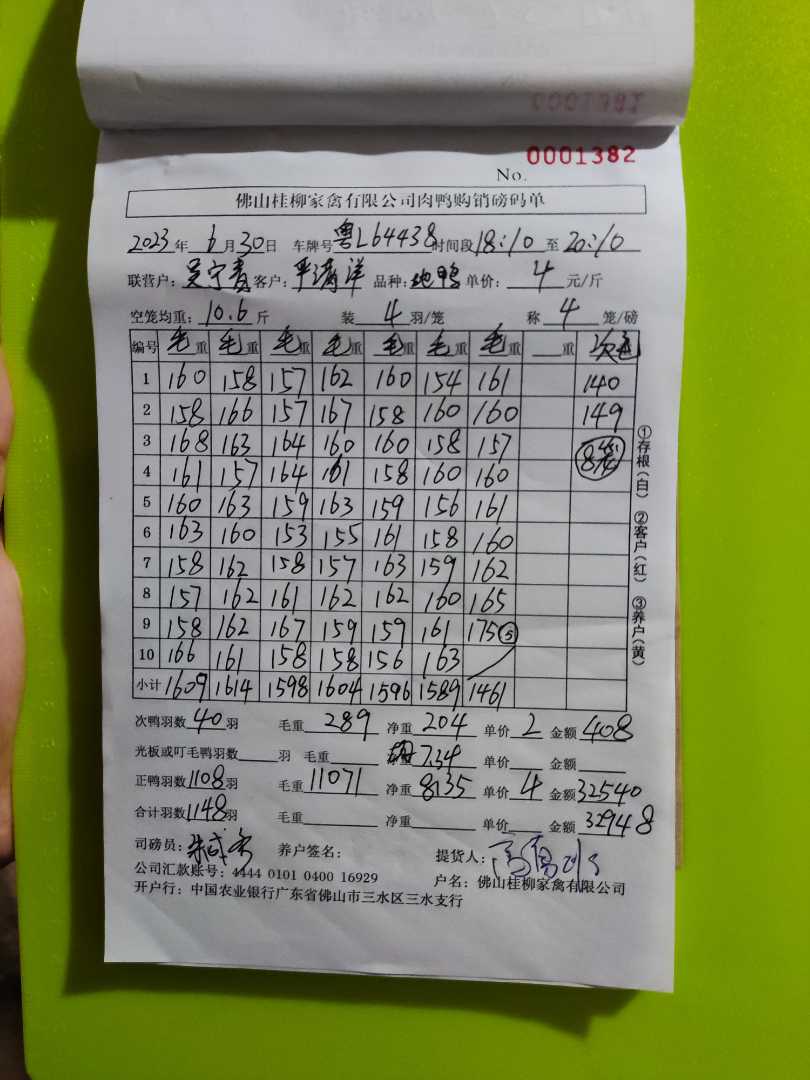 0001382
No.
佛山桂柳家禽有限公司肉鸭购销磅码单
2023年 6月30日 车牌号 粤L64438 时间段 18:10 至 20:10
联营户: 吴宁青 客户: 平满洋 品种: 地鸭 单价: 4 元/斤
空笼均重: 10.6 斤 装 4 羽/笼 称 4 笼/磅
编号 毛重 毛重 毛重 毛重 毛重 毛重 毛重 重 次毛
1 160 158 157 162 160 154 161 140
2 158 166 157 167 158 160 160 149
3 168 163 164 160 160 158 157 8笼
4 161 157 164 161 158 160 160
5 160 163 159 163 159 156 161
6 163 160 153 155 161 158 160
7 158 162 158 157 163 159 162
8 157 162 161 162 162 160 165
9 158 162 167 159 159 161 175 ⑤
10 166 161 158 158 156 163
小计 1609 1614 1598 1604 1596 1589 1461
次鸭羽数 40 羽 毛重 289 净重 204 单价 2 金额 408
光板或叮毛鸭羽数 羽 毛重 7.34 单价 金额
正鸭羽数 1108 羽 毛重 11071 净重 8135 单价 4 金额 32540
合计羽数 1148 羽 毛重 净重 单价 金额 32948
司磅员: 养户签名: 提货人:
公司汇款账号: 4444 0101 0400 16929 户名: 佛山桂柳家禽有限公司
开户行: 中国农业银行广东省佛山市三水区三水支行
①存根(白) ②客户(红) ③养户(黄)